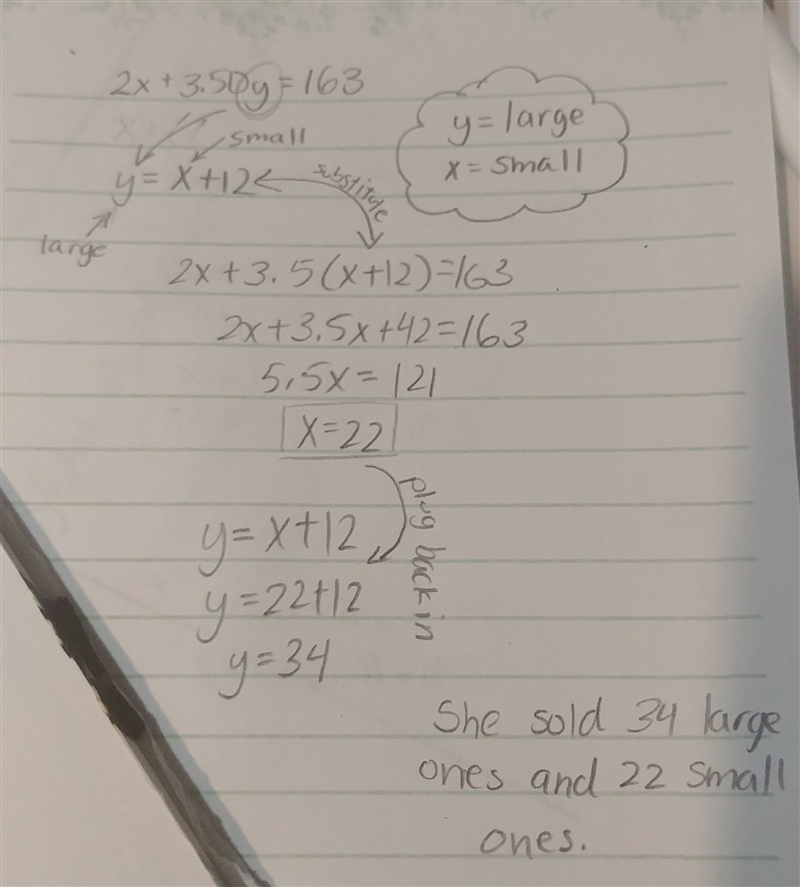 2x+3.50y=163
small
y=x+12
substitute
large
y=large
x=small
2x+3.5(x+12)=163
2x+3.5x+42=163
5.5x=121
x=22
plug back in
y=x+12
y=22+12
y=34
She sold 34 large
ones and 22 small
ones.